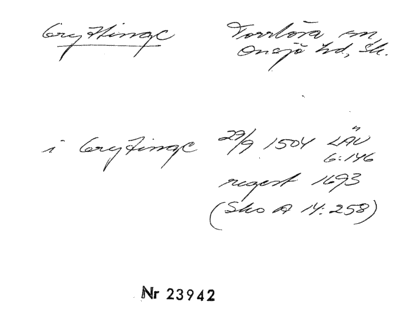 Gryttinge Torrlösa sn,
Onsjö hd, Sk.
i Gryttinge 29/9 1504 LÄU
6:146
regest 1693
(Sko A 14:258)
Nr 23942